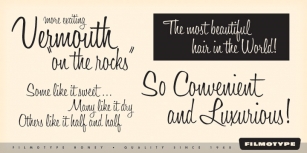 more exciting
Vermouth
"on the rocks"
The most beautiful
hair in the World!
Some like it sweet...
Many like it dry
Others like it half and half
So Convenient
and Luxurious!
FILMOTYPE HONEY • QUALITY SINCE
FILMOTYPE